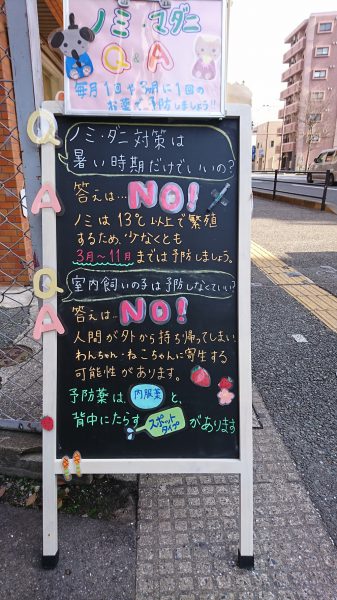 ノミ マダニ
Q&A
毎月1回や3ヶ月に1回の
お薬で予防しましょう!!
Q ノミ・ダニ対策は
暑い時期だけでいいの?
A 答えは…NO!
ノミは13℃以上で繁殖
するため、少なくとも
3月〜11月までは予防しましょう。
Q 室内飼いの子は予防しなくていい?
A 答えは…NO!
人間が外から持ち帰ってしまい
わんちゃん・ねこちゃんに寄生する
可能性があります。
予防薬は、内服薬と、
背中にたらすスポットタイプがあります